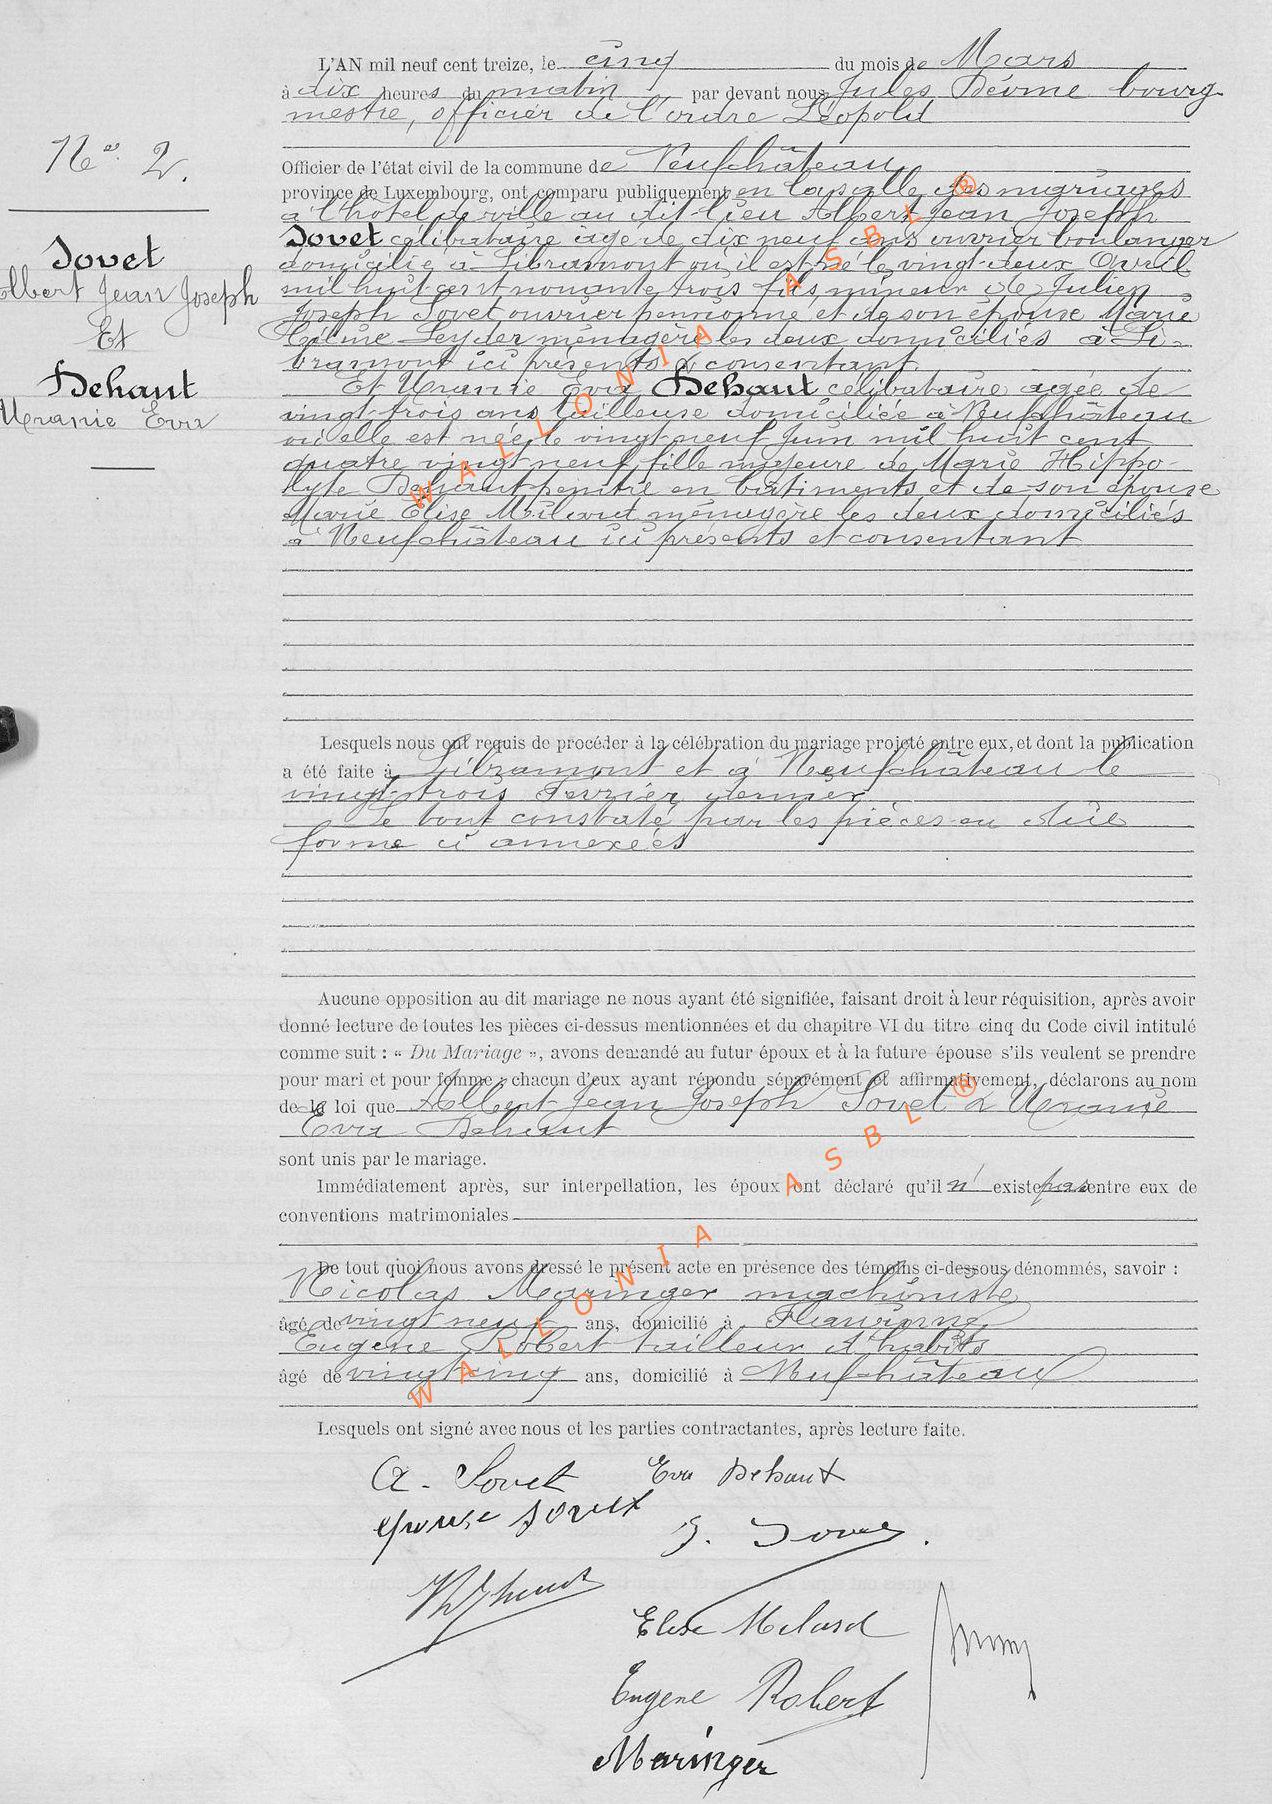 L'AN mil neuf cent treize, le cinq du mois de Mars
à dix heures du matin par devant nous Jules Déome bourg
mestre, officier de l'ordre Léopold
Officier de l'état civil de la commune de Neufchâteau
province de Luxembourg, ont comparu publiquement en la salle des mariages
à l'hôtel de ville au dit lieu Albert Jean Joseph
Sovet célibataire âgé de dix neuf ans ouvrier boulanger
domicilié à Libramont où il est né le vingt-deux Avril
mil huit cent nonante trois fils mineur de Julien
Joseph Sovet ouvrier pensionné et de son épouse Marie
Leyder ménagère les deux domiciliés à Li-
bramont ici présents & consentant.
Et Uranie Eva Dehaut célibataire agée de
vingt-trois ans tailleuse domiciliée à Neufchâteau
où elle est née le vingt neuf Juin mil huit cent
quatre vingt neuf, fille majeure de Marie Hippo-
lyte Dehaut peintre en bâtiments et de son épouse
Marie Elise Milard ménagère les deux domiciliés
à Neufchâteau ici présents et consentant
No. 2.
Sovet
Albert Jean Joseph
Et
Dehaut
Uranie Eva
Lesquels nous ont requis de procéder à la célébration du mariage projeté entre eux, et dont la publication
a été faite à Libramont et à Neufchâteau le
vingt trois Février dernier
Le tout constaté par les pièces en dûe
forme ci annexées
Aucune opposition au dit mariage ne nous ayant été signifiée, faisant droit à leur réquisition, après avoir
donné lecture de toutes les pièces ci-dessus mentionnées et du chapitre VI du titre cinq du Code civil intitulé
comme suit : « Du Mariage », avons demandé au futur époux et à la future épouse s'ils veulent se prendre
pour mari et pour femme ; chacun d'eux ayant répondu séparément et affirmativement, déclarons au nom
de la loi que Albert Jean Joseph Sovet & Uranie
Eva Dehaut
sont unis par le mariage.
Immédiatement après, sur interpellation, les époux ont déclaré qu'il n' existe pas entre eux de
conventions matrimoniales
De tout quoi nous avons dressé le présent acte en présence des témoins ci-dessous dénommés, savoir :
Nicolas Maringer machiniste
âgé de vingt neuf ans, domicilié à
Eugène Robert tailleur d'habits
âgé de vingt cinq ans, domicilié à Neufchâteau
Lesquels ont signé avec nous et les parties contractantes, après lecture faite.
A. Sovet Eva Dehaut
épouse Sovet
J. Sovet.
Elise Milard
Eugène Robert
Maringer
WALLONIA ASBL ®
WALLONIA ASBL ®